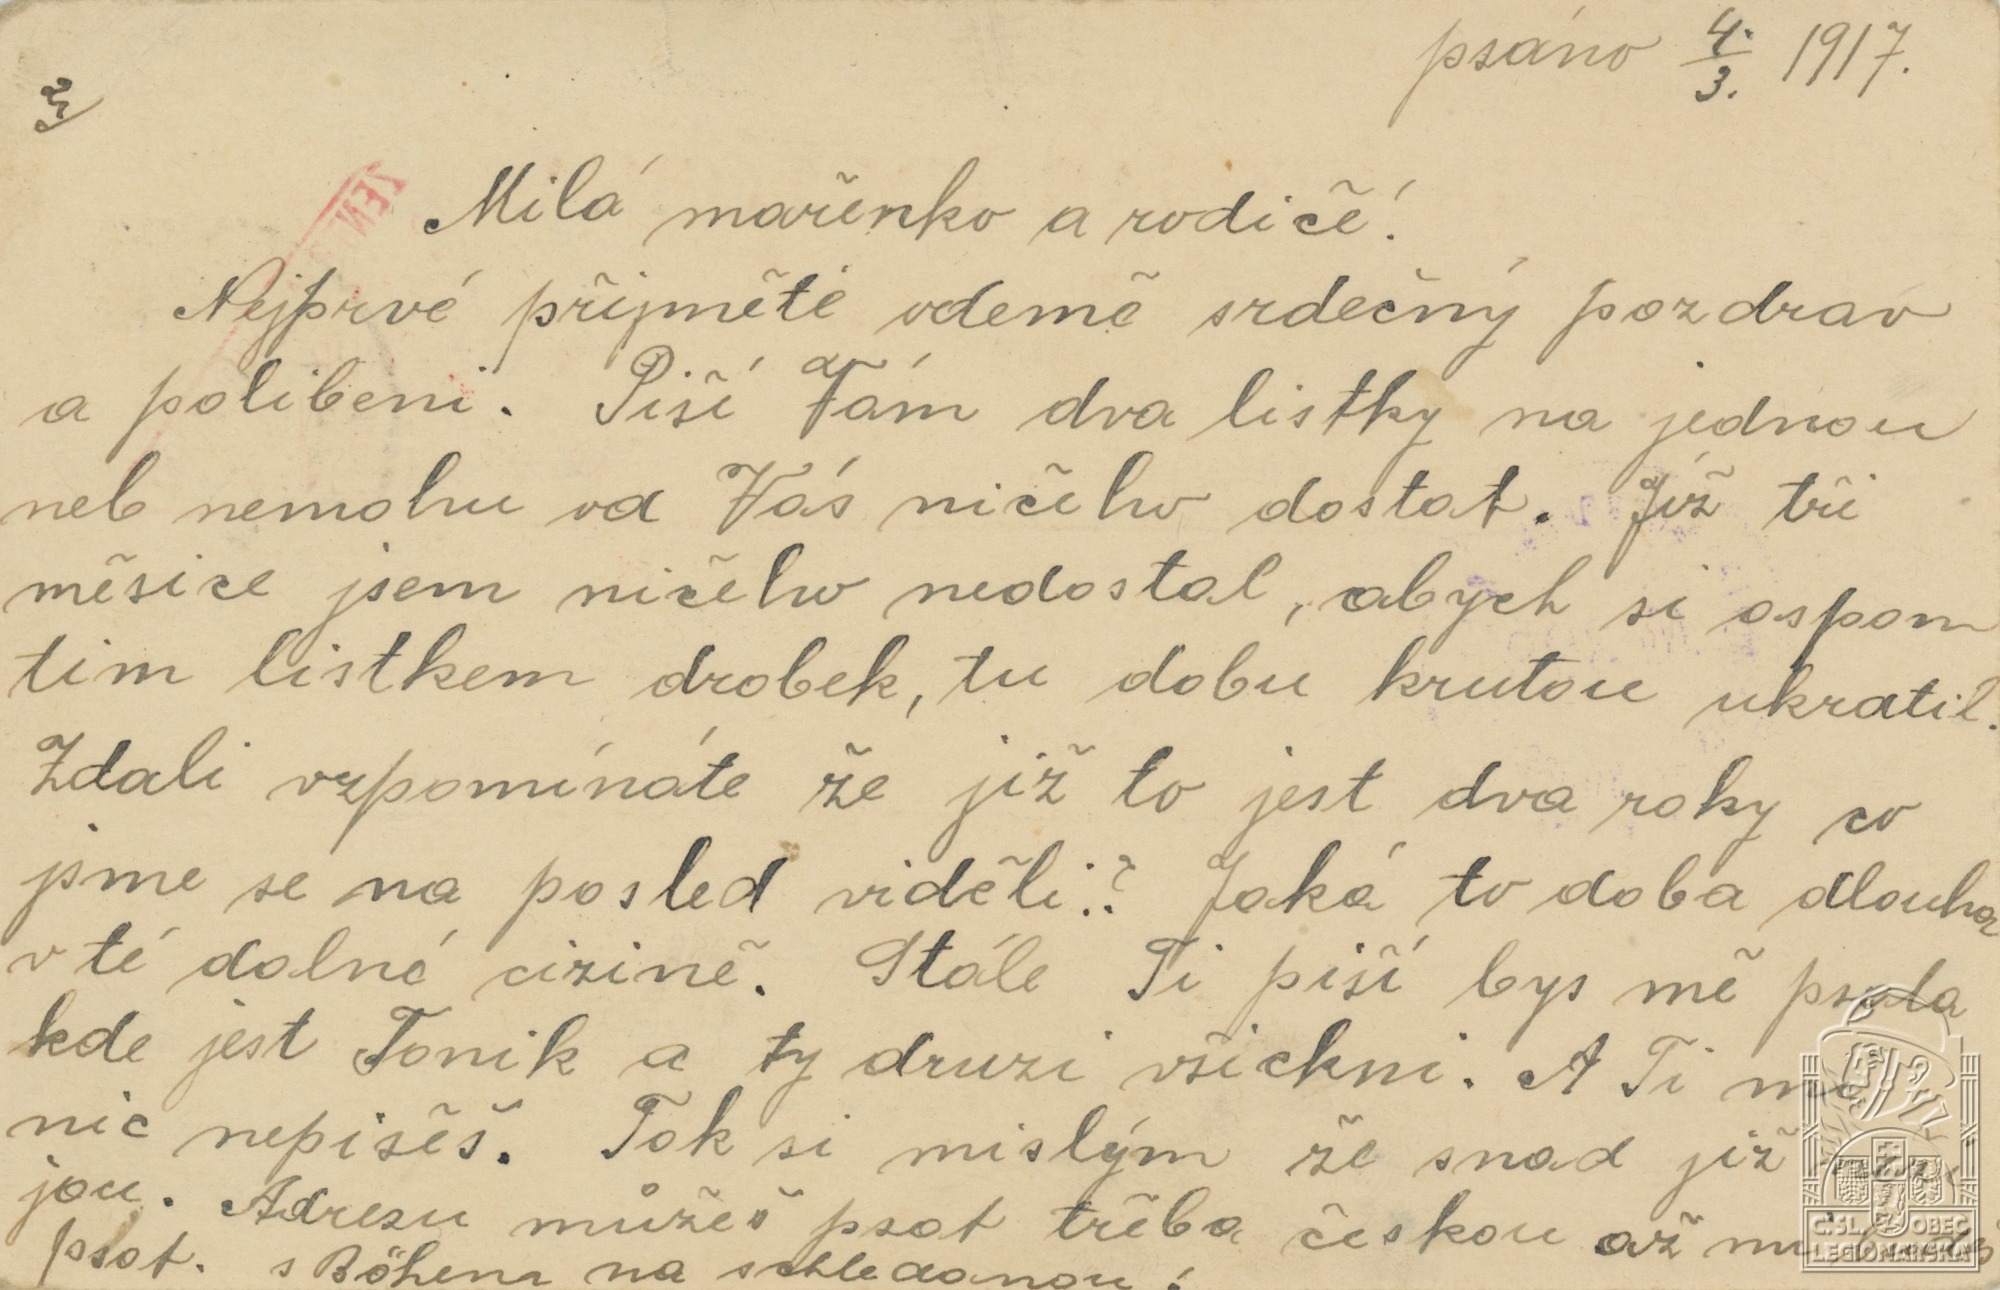 psáno 4./3. 1917.
Milá mařenko a rodičé!
Nejprvé přijměté odemě srdečný pozdrav
a polibeni. Piší Vám dva listky na jednou
neb nemohu od Vás ničeho dostat. Již tři
měsice jsem ničeho nedostal, abych si aspom
tim listkem drobek, tu dobu krutou ukratil.
Zdali vzpomínáte že již to jest dva roky co
jsme se na posled viděli? Jaká to doba dlouha
v té dalné cizině. Stále Ti piší bys mě psala
kde jest Tonik a ty druzi všickni. A Ti mě
nic nepisěš. Tak si mislým že snad již
jou. Adresu můžeš psat třeba českou až mi budeš
psat. s Böhem na schledanou!
C.SL. OBEC
LEGIONÁŘSKÁ